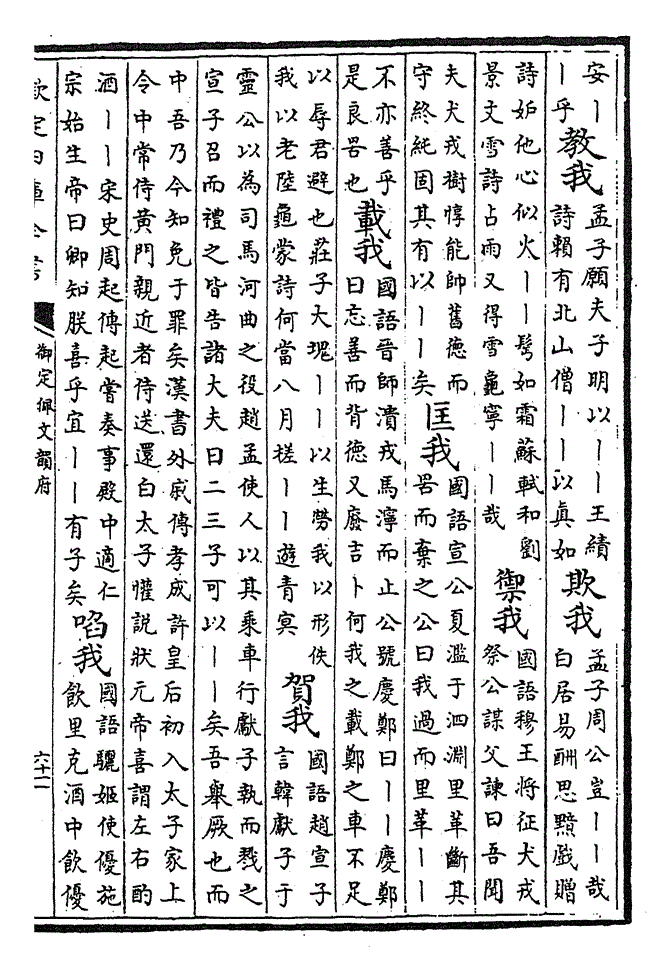 安｜
｜乎
教我
孟子願夫子明以｜｜王績
詩賴有北山僧｜｜以真如
欺我
孟子周公豈｜｜哉
白居易酬思黯戲贈
詩妒他心似火｜｜鬢如霜蘇軾和劉
景文雪詩占雨又得雪龜寧｜｜哉
禦我
國語穆王将征犬戎
祭公謀父諫曰吾聞
夫犬戎樹惇能帥舊德而
守終純固其有以｜｜矣
匡我
國語宣公夏濫于泗淵里革斷其
罟而棄之公曰我過而里革｜｜
不亦善乎
是良罟也
載我
國語晉師潰戎馬濘而止公號慶鄭曰｜｜慶鄭
曰忘善而背德又廢吉卜何我之載鄭之車不足
以辱君避也莊子大塊｜｜以生勞我以形佚
我以老陸龜蒙詩何當八月槎｜｜遊青冥
賀我
國語趙宣子
言韓獻子于
靈公以為司馬河曲之役趙孟使人以其乘車行獻子執而戮之
宣子召而禮之皆告諸大夫曰二三子可以｜｜矣吾舉厥也而
中吾乃今知免于罪矣漢書外戚傳孝成許皇后初入太子家上
令中常侍黄門親近者侍送還白太子懽說狀元帝喜謂左右酌
酒｜｜宋史周起傳起嘗奏事殿中適仁
宗始生帝曰卿知朕喜乎宜｜｜有子矣
啗我
國語驪姬使優施
飲里克酒中飲優
欽定四庫全書
御定佩文韻府
六十二